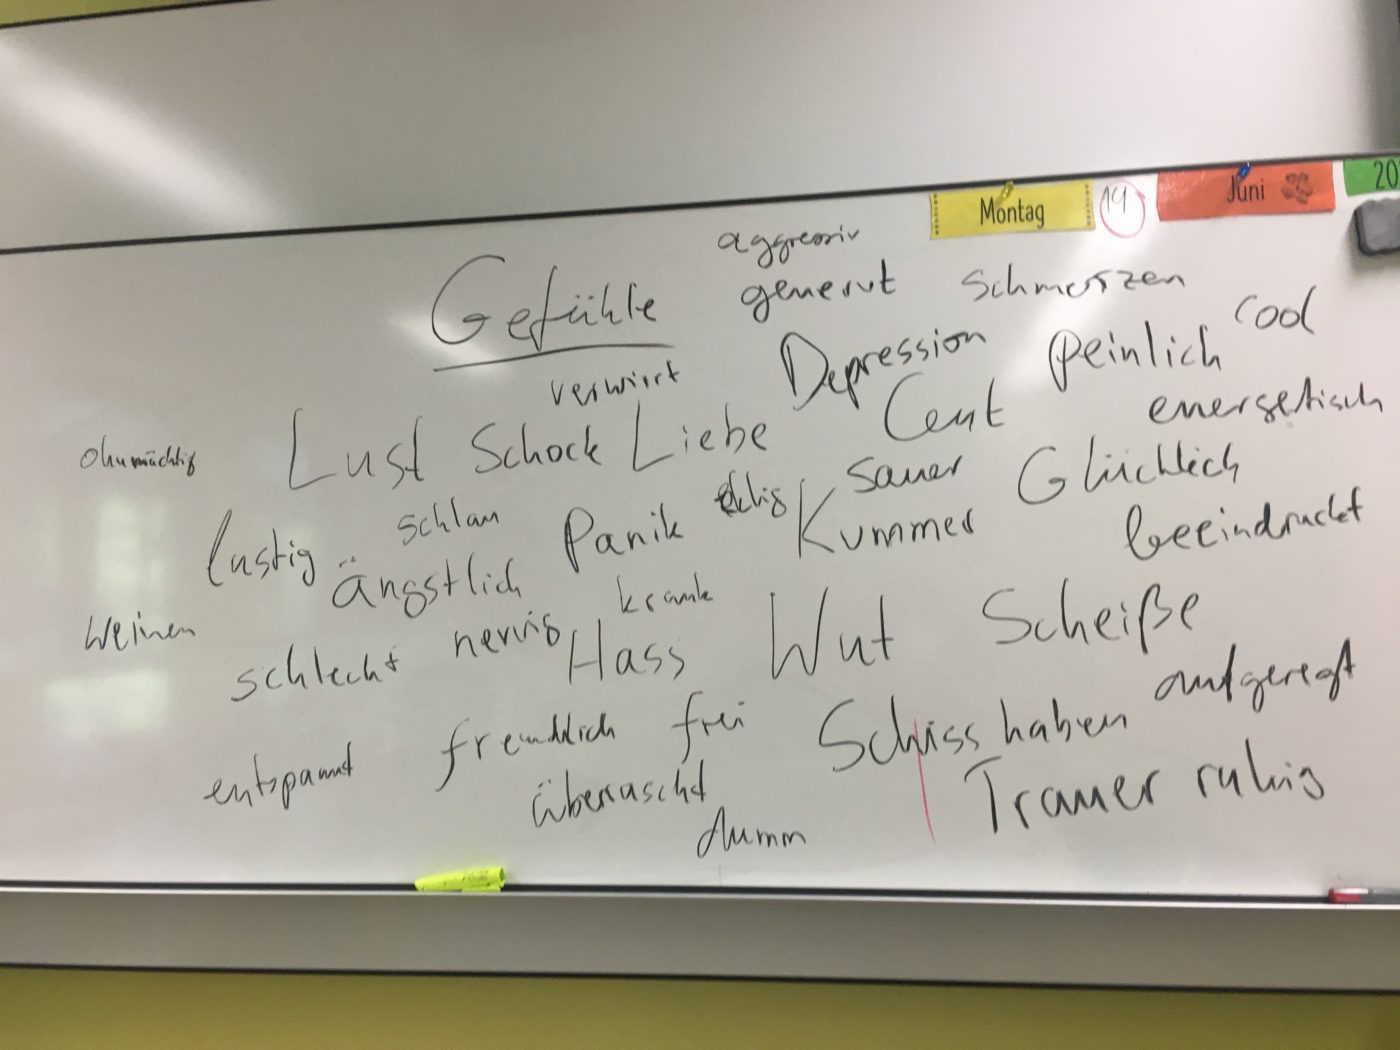 Montag 14 Juni 20
aggressiv
Gefühle genervt schmerzen cool
verwirrt Depression peinlich
ohnmächtig Lust Schock Liebe energetisch
lustig schlau Panik eklig sauer Glücklich
ängstlich Kummer beeindruckt
weinen schlecht nervig krank
Hass Wut Scheiße
entspannt freundlich frei Schiss haben aufgeregt
überrascht Trauer ruhig
dumm